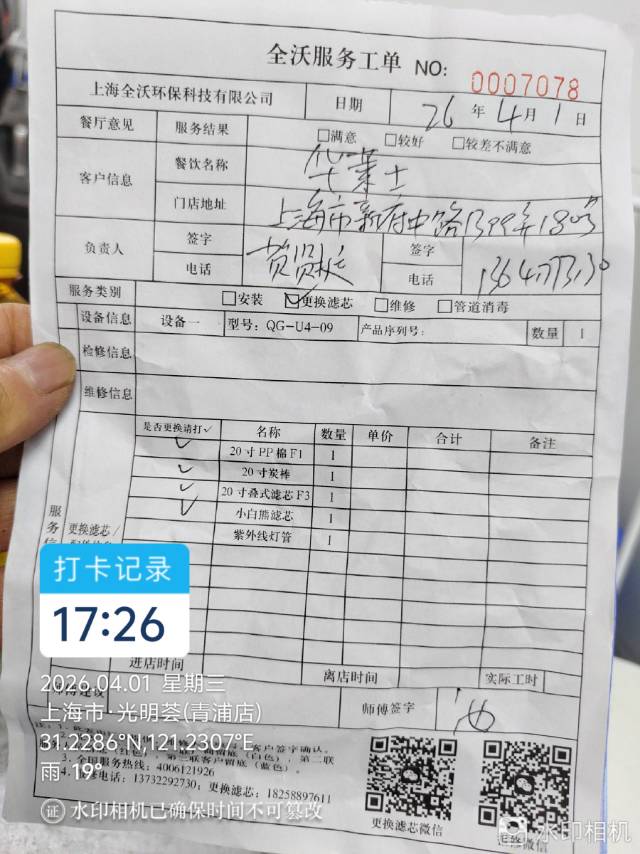 全沃服务工单 NO: 0007078
上海全沃环保科技有限公司 日期 26 年 4 月 1 日
餐厅意见 服务结果 □满意 □较好 □较差不满意
客户信息 餐饮名称 华莱士
门店地址 上海市新府中路1399弄18号
负责人 签字 签字
电话 电话
服务类别 □安装 ☑更换滤芯 □维修 □管道消毒
设备信息 设备一 型号: QG-U4-09 产品序列号: 数量 1
检修信息
维修信息
是否更换请打✓ 名称 数量 单价 合计 备注
✓ 20寸PP棉F1 1
✓ 20寸炭棒 1
✓ 20寸叠式滤芯F3 1
✓ 小白熊滤芯 1
紫外线灯管 1
服务信 更换滤芯/
打卡记录
17:26
进店时间 离店时间 实际工时
2026.04.01 星期三
师傅签字
上海市·光明荟(青浦店)
31.2286°N,121.2307°E
雨·19°
客户签字确认。
(白色), 第二联
(红色), 第三联客户留底(蓝色)。
3.全国服务热线: 4006121926
4. 电话: 13732292730, 更换滤芯: 18258897611
更换滤芯微信
证 水印相机已确保时间不可篡改
水印相机